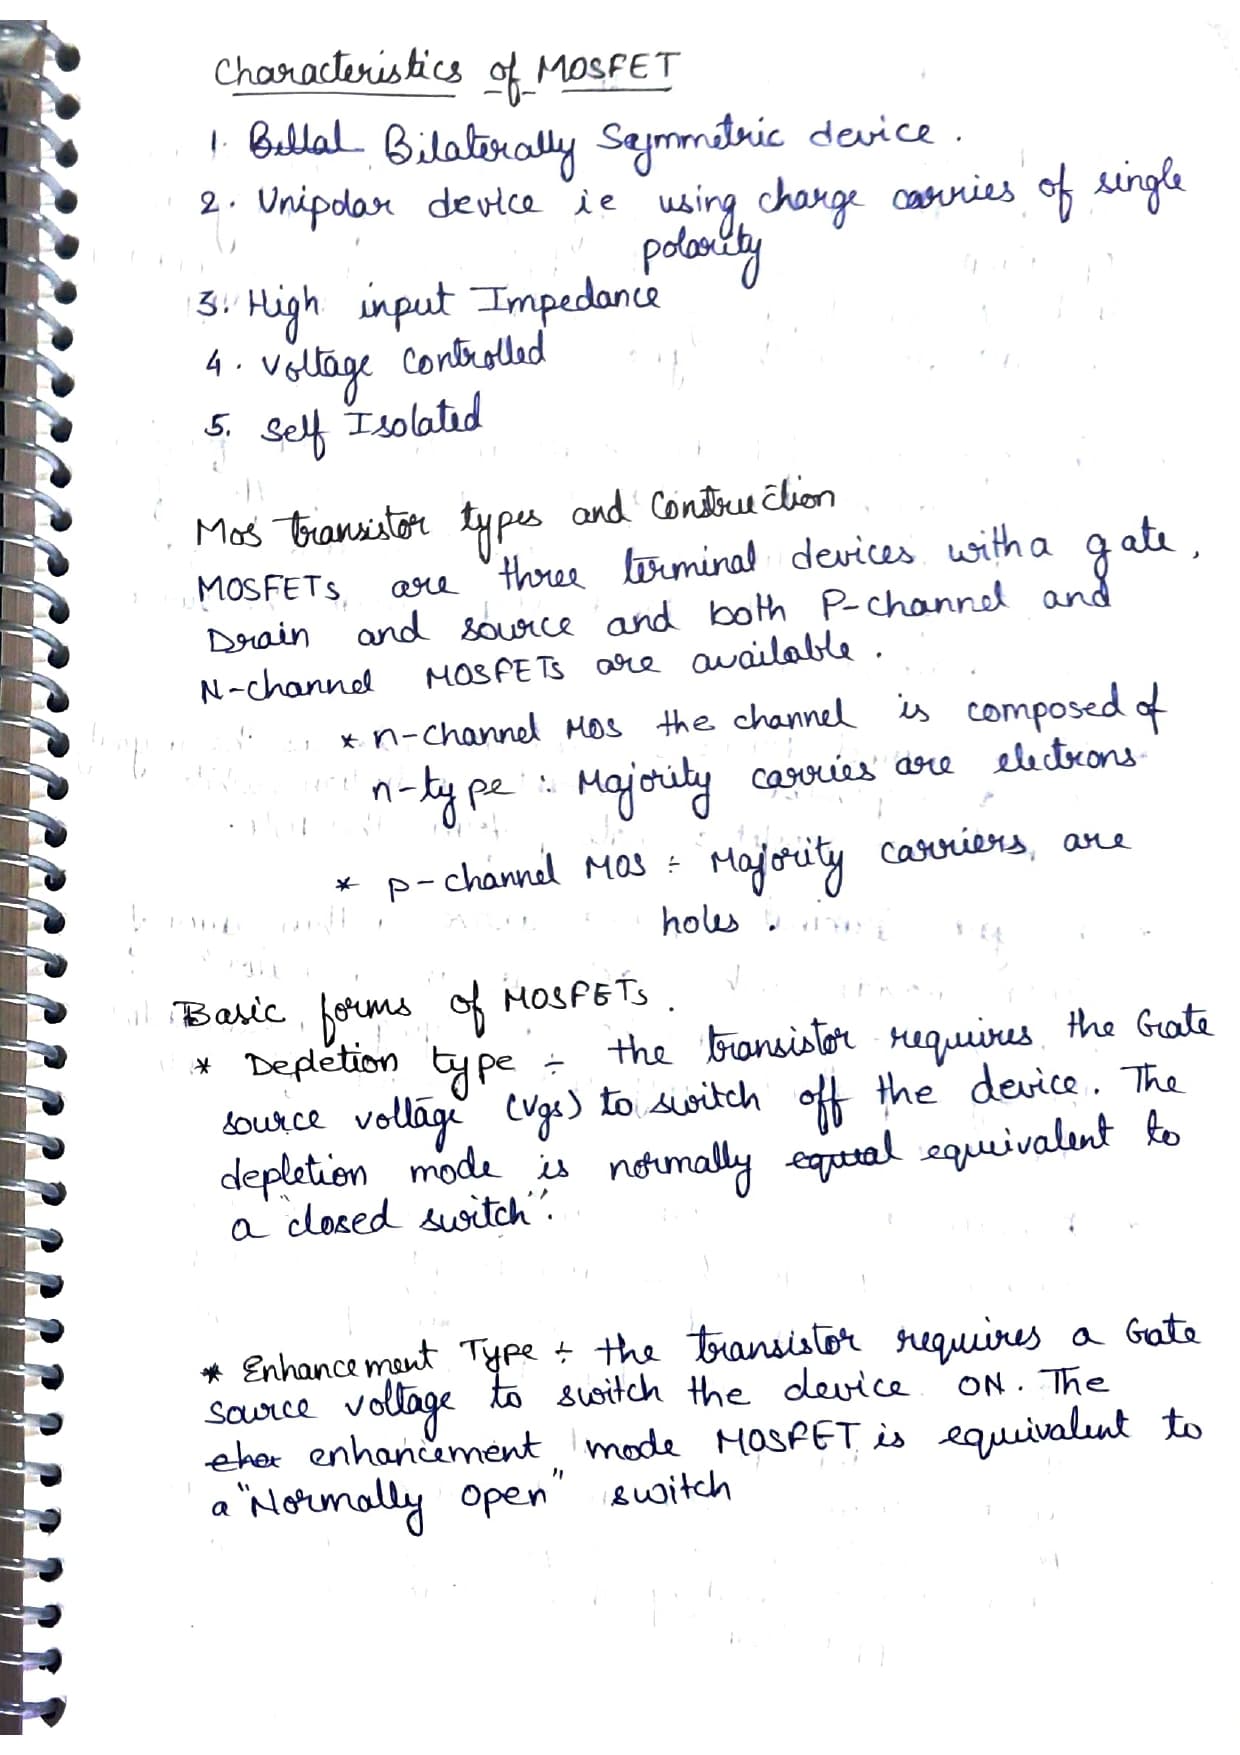 Characteristics of MOSFET
1. Billal Bilaterally Symmetric device.
2. Unipolar device ie using charge carries of single
polarity
3. High input Impedance
4. Voltage Controlled
5. Self Isolated
Mos transistor types and Construction
MOSFETs are three terminal devices with a gate,
Drain and source and both P-channel and
N-channel MOSFETs are available.
* n-channel MOS the channel is composed of
n-type : Majority carries are electrons
* p-channel MOS ÷ Majority carriers are
holes.
Basic forms of MOSFETs.
* Depletion type ÷ the transistor requires the Gate
source voltage (Vgs) to switch off the device. The
depletion mode is normally equal equivalent to
a "closed switch".
* Enhancement Type ÷ the transistor requires a Gate
source voltage to switch the device ON. The
eher enhancement mode MOSFET is equivalent to
a "Normally open" switch